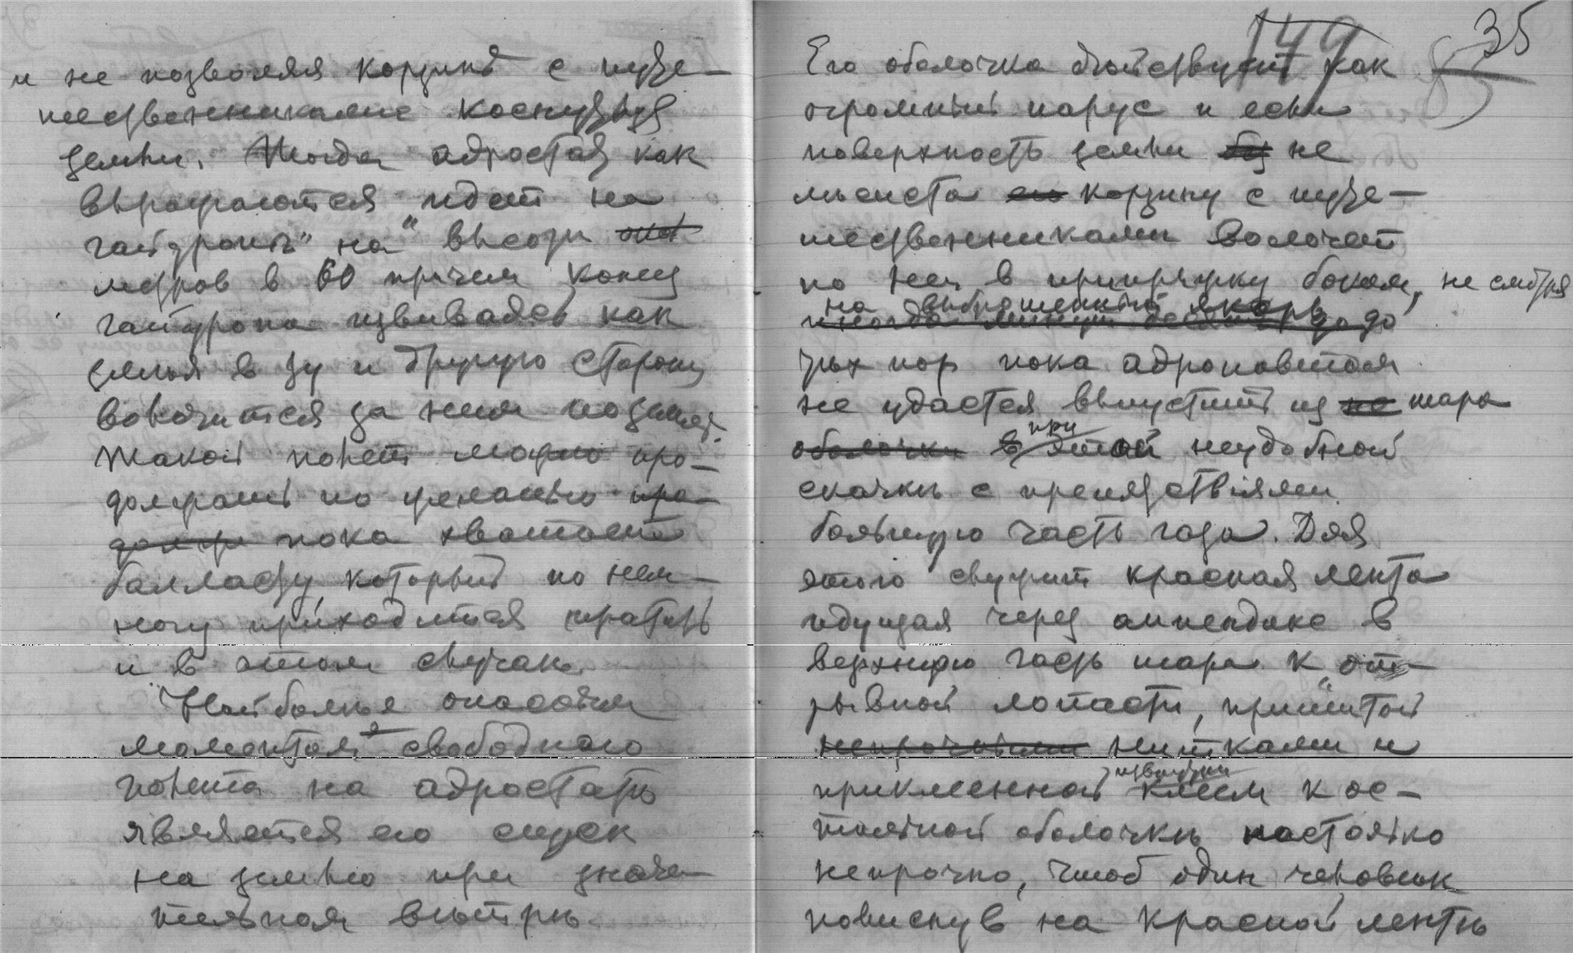 и не позволяя корзинѣ с путе-
шественниками коснуться
земли. Тогда аэростат как
выражаются идет на
гайдропѣ" на высоте
метров в 60 причем конец
гайдропа извиваясь как
змея в ту и другую сторону
волочится за ним по землѣ.
Такой полет можно про-
должать по желанью про-
должи пока хватает
балласту, который по нем-
ногу приходится тратить
и в этом случаѣ.
Наиболѣе опасным
моментом свободного
полета на аэростатѣ
является его спуск
на землю при значи
тельном вѣтрѣ.
149 35
Его оболочка дѣйствует как
огромный парус и если
поверхность земли не
льсиста его корзину с путе-
шественниками волочет
по ней в припрыжку боком, не смотря
на выброшенный якорь
до
тѣх пор пока аэронавтам
не удастся выпустить из шара
оболочки при
в этой неудобной
скачкѣ с препятствіями
большую часть газа. Для
этого служит красная лента
идущая через аппендикс в
верхнюю часть шара к „от-
рывной" лопасти, пришитой
непрочными нитками и
извнутри
приклеенной клеем к ос-
тальной оболочкѣ настолько
непрочно, чтоб один человѣк
повиснув на красной лентѣ